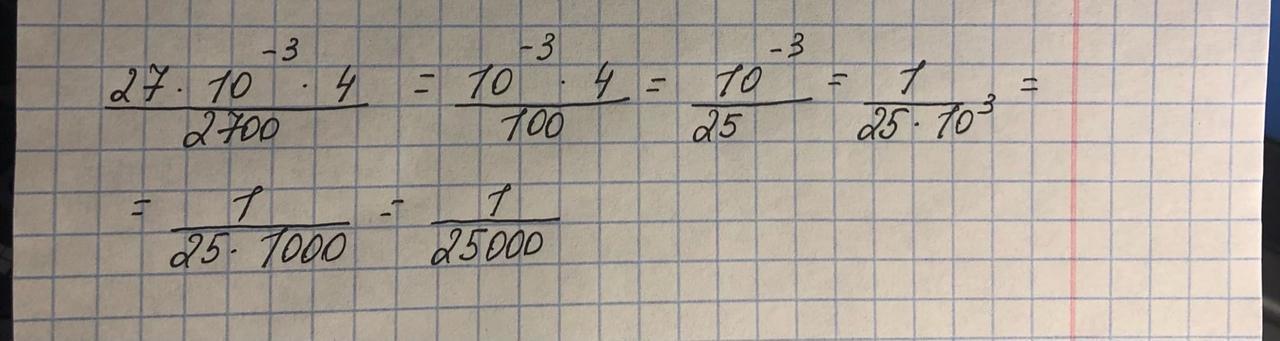 27 · 10⁻³ · 4 / 2700 = 10⁻³ · 4 / 100 = 10⁻³ / 25 = 1 / 25 · 10³ =
= 1 / 25 · 1000 = 1 / 25000